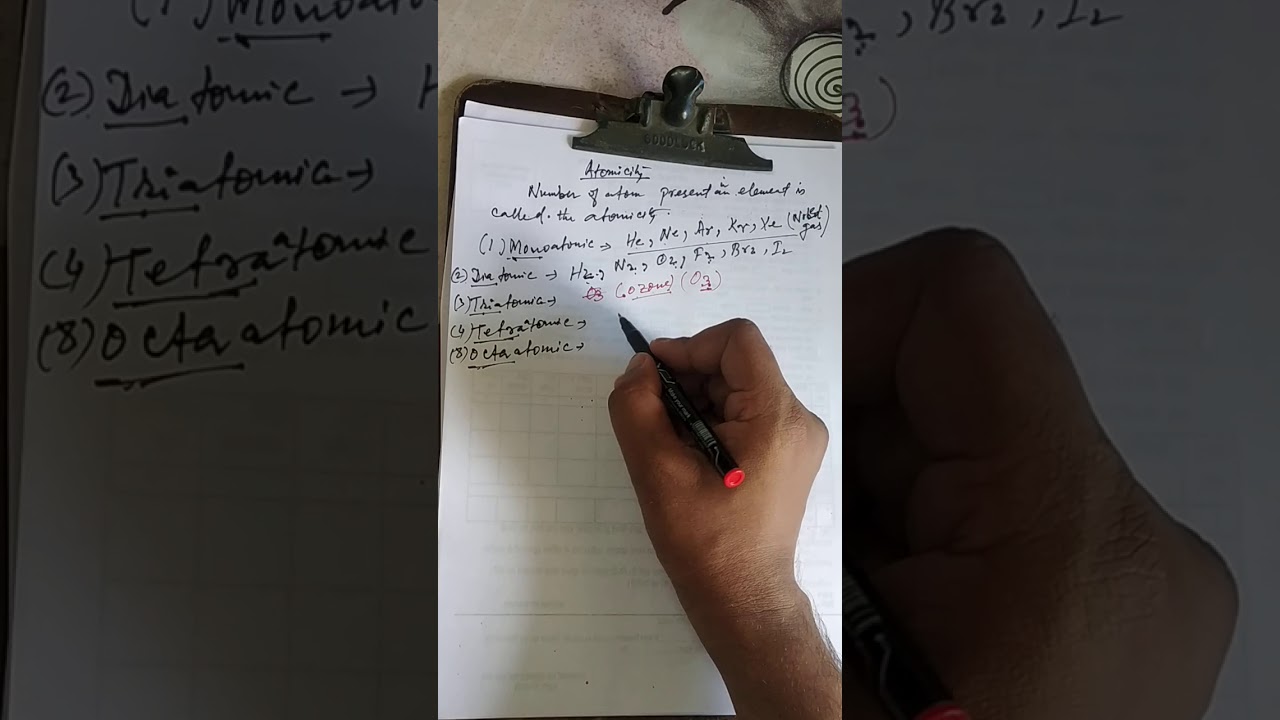 GODOLOCK
Atomicity
Number of atom present in an element is
called. the atomicity.
(1) Monoatomic → He, Ne, Ar, Kr, Xe (Nobel gas)
(2) Diatomic → H2, N2, O2, F2, Br2, I2
(3) Triatomic → O3 (ozone) (O3)
(4) Tetraatomic →
(8) Octaatomic →